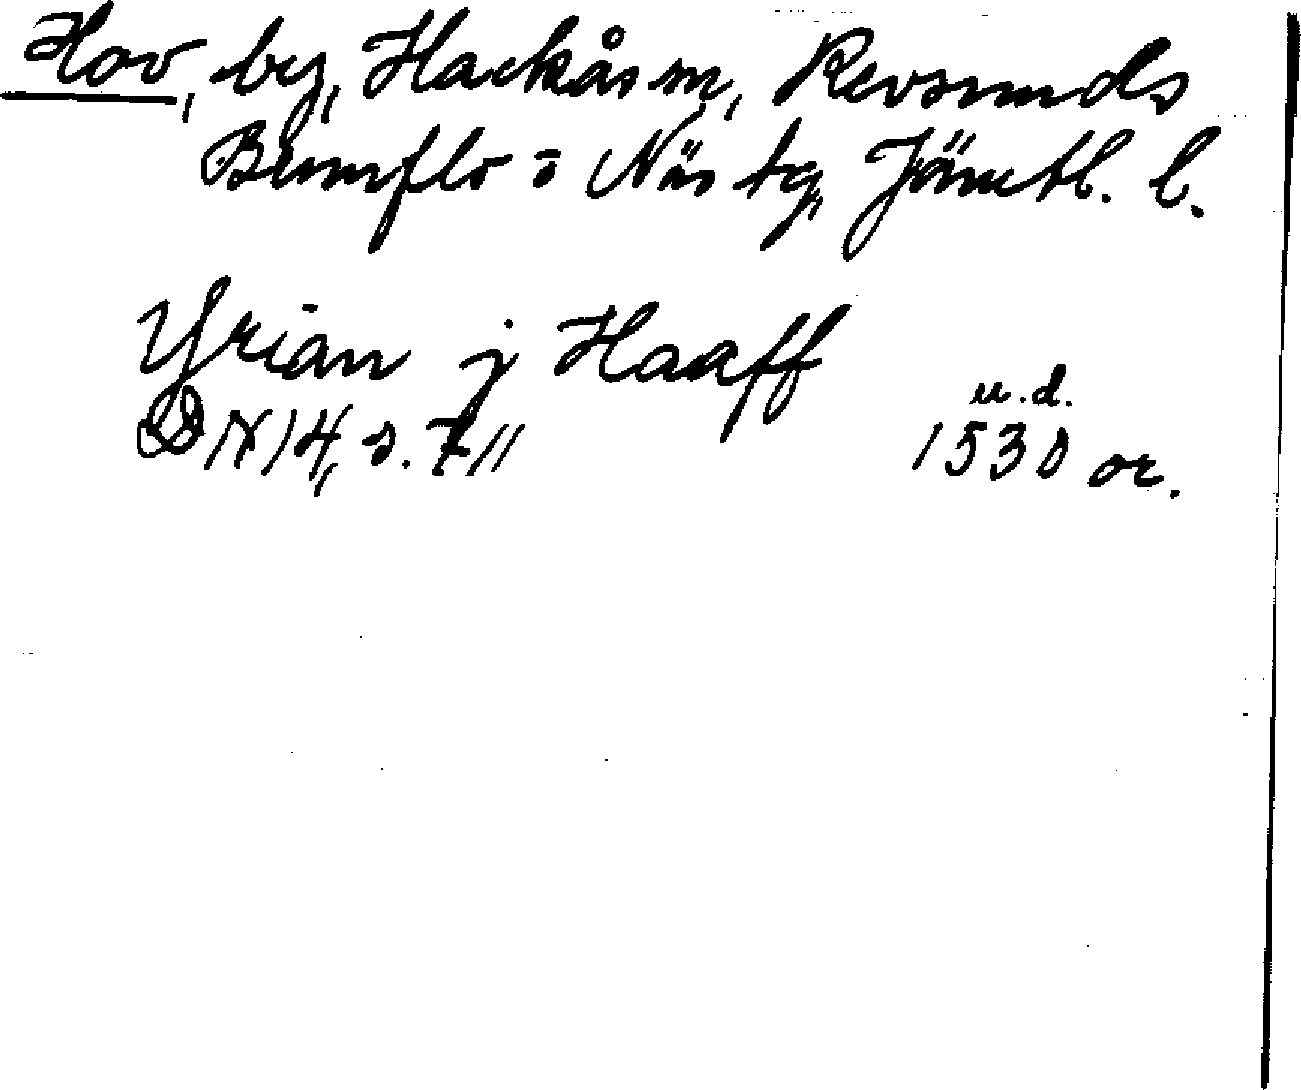 Hov, by, Hackås sn, Revsunds
Brunflo o Näs tg, Jämtl. l.
Yrian j Haaff
DN 14, s. 711
u.d.
1530 or.